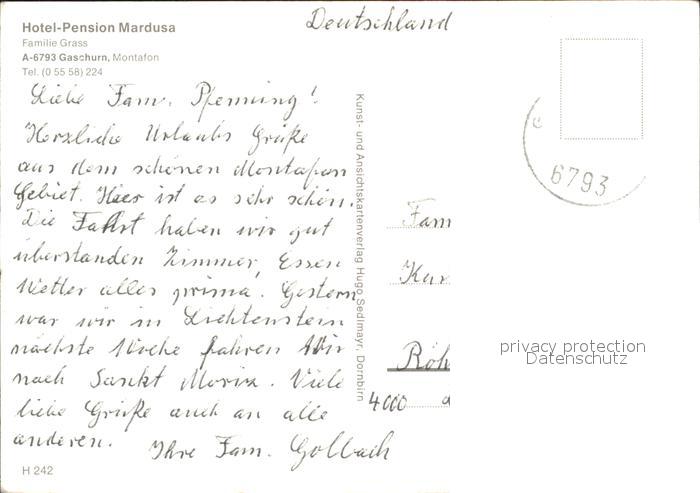 Hotel-Pension Mardusa
Familie Grass
A-6793 Gaschurn, Montafon
Tel. (0 55 58) 224
Deutschland
Liebe Fam. Pfenning!
Herzliche Urlaubs Grüße
aus dem schönen Montafon
Gebiet. Hier ist es sehr schön.
Die Fahrt haben wir gut
überstanden Zimmer, Essen
Wetter alles prima. Gestern
war wir in Lichtenstein
nächste Woche fahren Wir
nach Sankt Moriz. Viele
liebe Grüße auch an alle
anderen.
Ihre Fam. Gollbach
H 242
Kunst- und Ansichtskartenverlag Hugo Sedlmayr, Dornbirn
6793
Fam
Kur
Röh
4000 d
privacy protection
Datenschutz